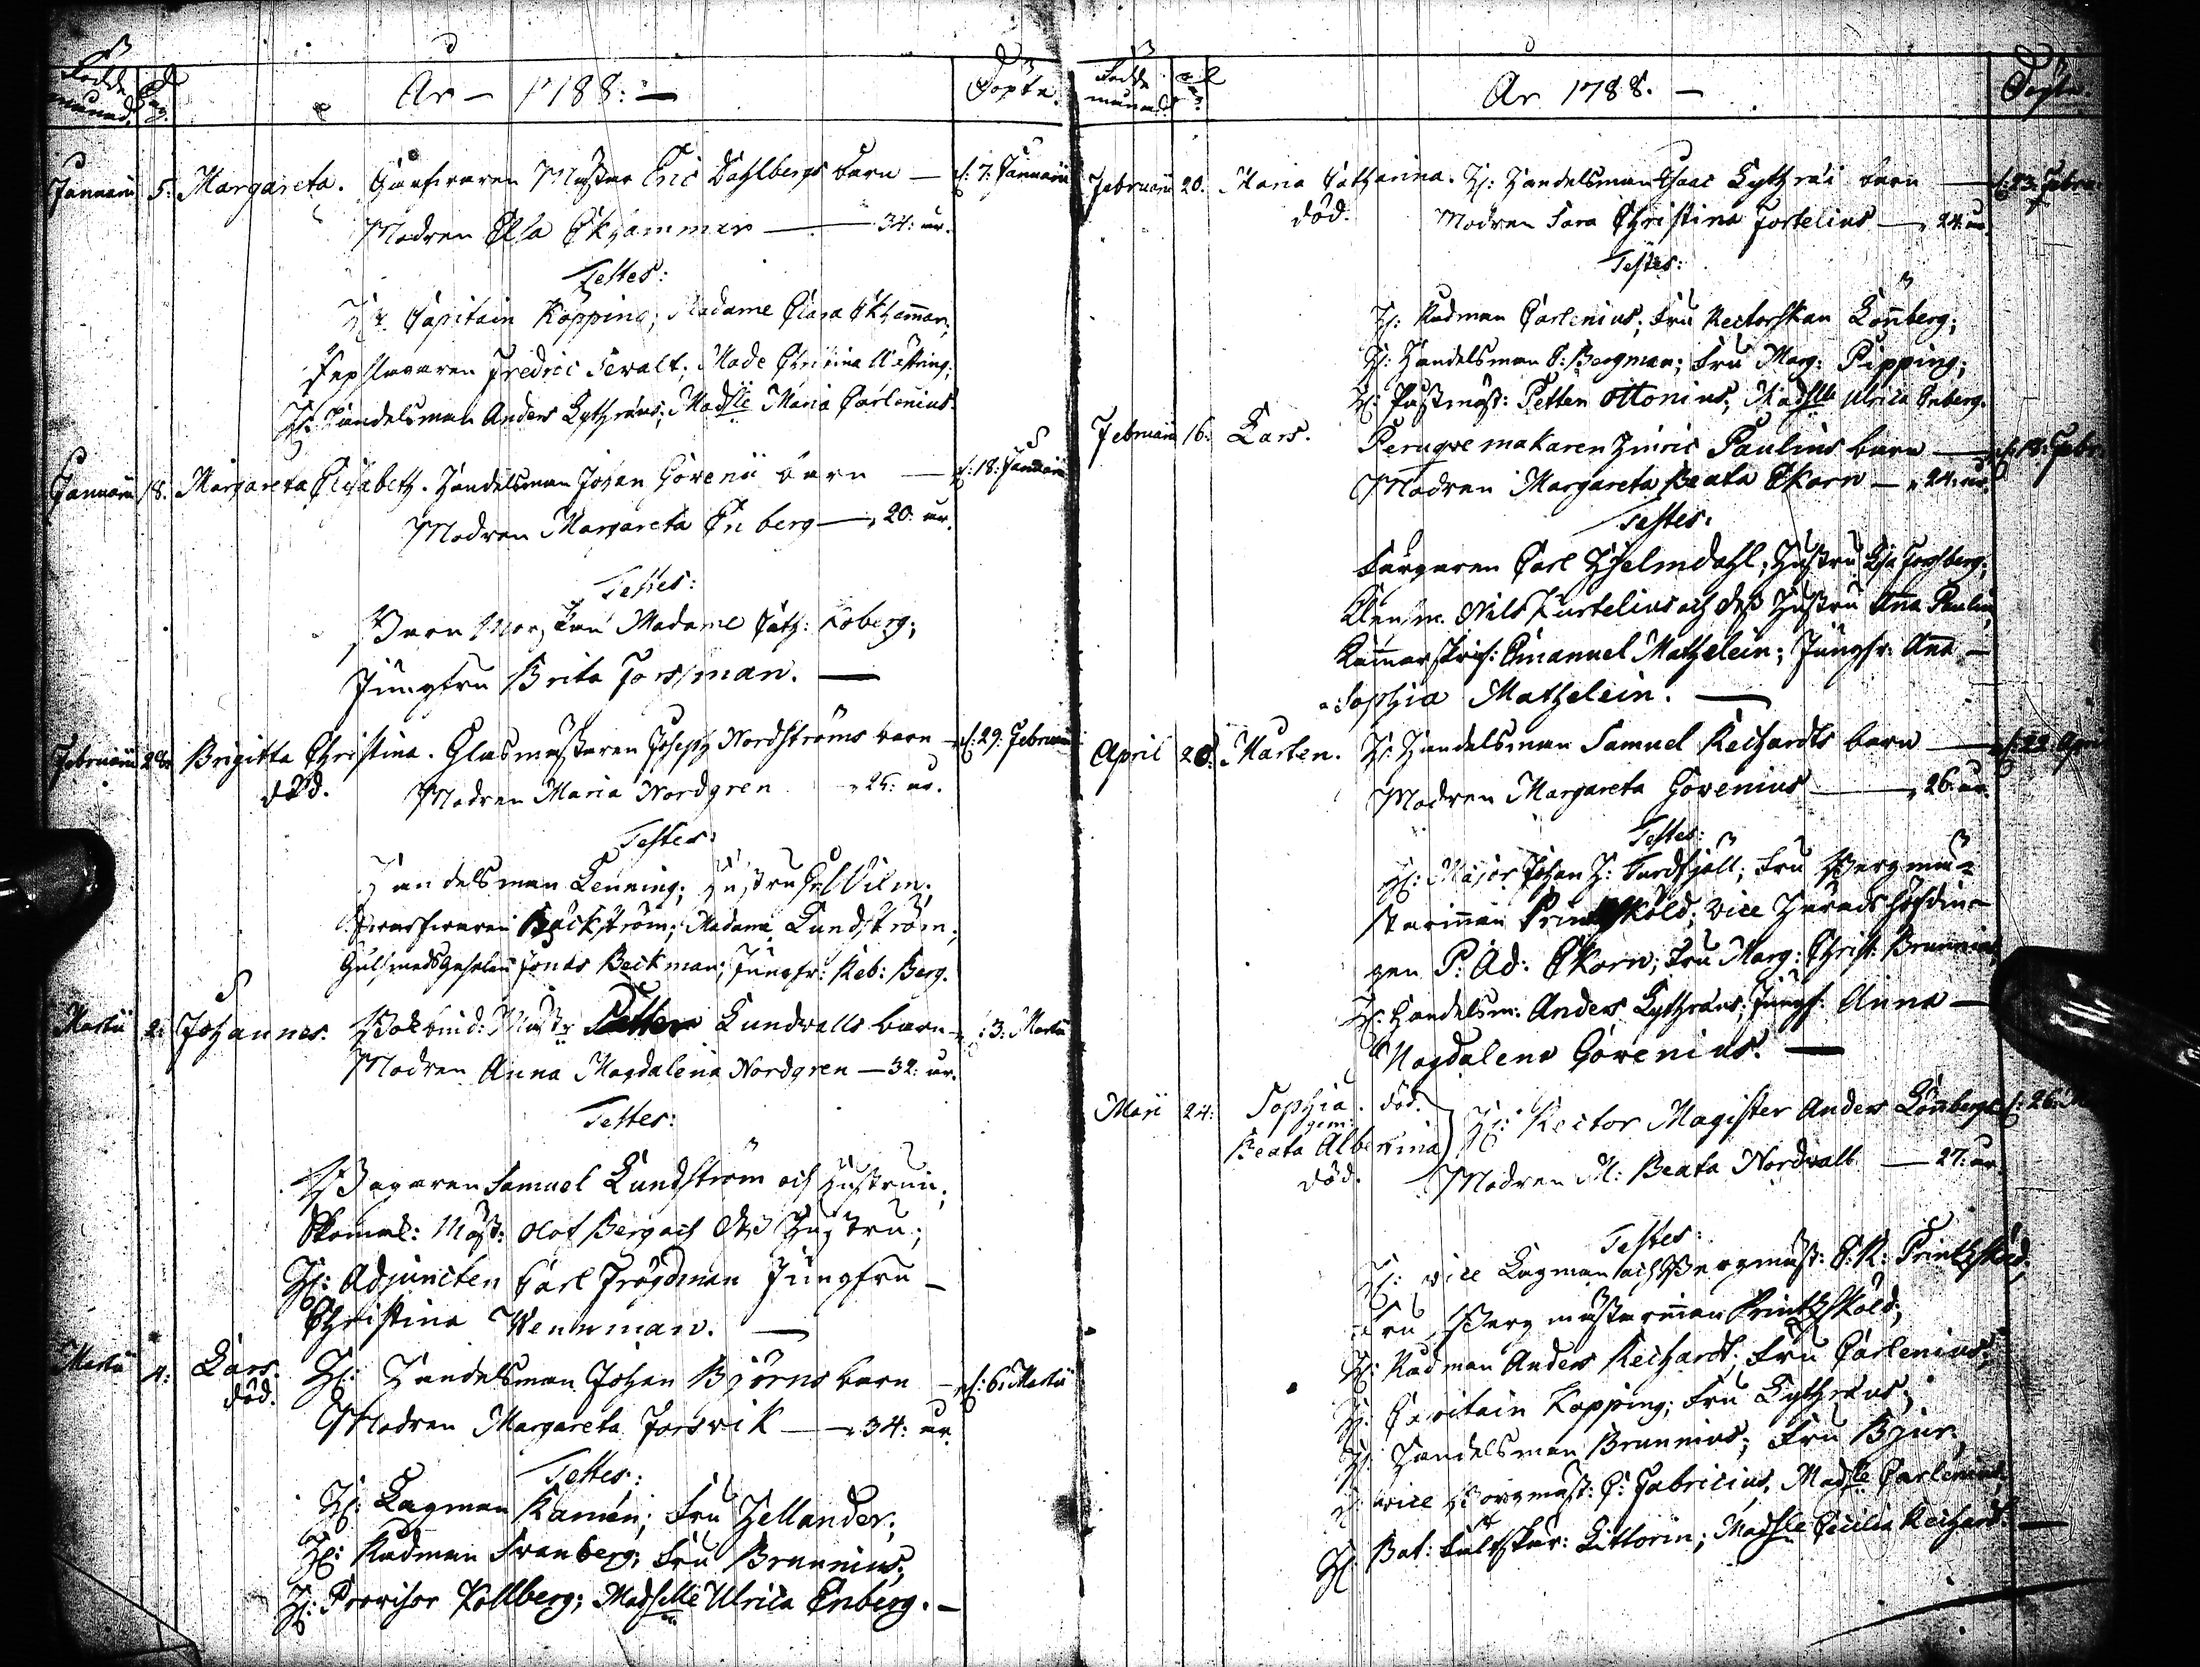 Födde månad. Dag. År – 1788: – Döpte.
Januarii 5: Margareta. Garfvaren Mäster Eric Dahlbergs barn – d: 7. Januarii
Modren Elsa Ekhammar – 34: år.
Testes:
Hr Capitain Köpping; Madame Clara Ekhammar;
Repslagaren Fredric Sevalt; Made Christina Wästring;
H: Handelsman Anders Lythræus; Madslle Maria Carlenius.
Januarii 18. Margareta Elisabeth. Handelsman Johan Govenii barn – d: 18: Januarii
Modren Margareta Enberg – 20. år.
Testes:
Madame Cath: Koberg;
Jungfru Brita Forsman. –
Februarii 28. Brigitta Christina. Glasmästaren Joseph Nordströms barn – d: 29. Februarii
död. Modren Maria Nordgren – 25: år.
Testes:
Handelsman Lenning; Hustru
Bäckström; Madame Lundström;
Gulsmedsgesälen Jonas Beckman; Jungfr: Reb: Berg.
Martii 2: Johannes. Bokbind: Mästr Petter Lundvalls barn – d: 3: Martii
Modren Anna Magdalena Nordgren – 32: år.
Testes:
Bagaren Samuel Lundström och Hustrun;
Skomak: Mäst: Olof Berg och dess Hustru;
H: Adjuncten Carl Frögdman Jungfru –
Christina Wennman. –
Martii 4: Lars. H: Handelsman Johan Björns barn – d: 6: Martii
död.
Modren Margareta Forsvik – 34: år.
Testes:
H: Lagman Kamén; Fru Hellander;
H: Rådman Svanberg; Fru Brunnius;
H: Provisor Kollberg; Madselle Ulrica Enberg. –
Födde månad. År 1788. – Döpte.
Februarii 20. Maria Catharina. H: Handelsman Isaac Lythræi barn – d: 23. Febru
död. Modren Sara Christina Fortelius – 24: år
Testes:
H: Rådman Carlenius; Fru Rectorskan Lönnberg;
H: Handelsman C: Bergman; Fru Marg: Pipping;
H: Postmäst: Petter Ottonius; Madslle Ulrica Enberg.
Februarii 16. Lars. Peruqve makaren Hinric Paulins barn – d: 18: Febr
Modren Margareta Beata Ekorn – 24: år.
Testes:
Färgaren Carl Hjelmdahl; Hustru Lisa Forsberg;
Nils Kurtelius och dess Hustru Anna Paulin;
Kammarskrif: Emanuel Mathelein; Jungfr: Anna –
Sophia Mathelein. –
April 20: Marten. H: Handelsman Samuel Reichardts barn – d: 22 Apri
Modren Margareta Govenius – 26: år.
Testes:
H: Major Johan H: Furdfjäll; Fru Bergmä-
starinnan Printzsköld; Vice Häradshöfdin-
gen P: Ad: Ekorn; Fru Marg: Christ: Brunnius
H: Handelsm: Anders Lythræus; Jungf: Anna –
Magdalena Govenius. –
Maii 24: Sophia. död. H: Rector Magister Anders Lönbergs d: 26. M
gem:
Beata Albertina
död. Modren M: Beata Nordvall – 27: år.
Testes:
H: vice Lagman och Bergmäst: C: R: Printzsköld;
Fru Bergmästarinnan Printzsköld;
H: Rådman Anders Reichardt; Fru Carlenius;
H: Capitain Köpping; Fru Lythræus;
H: Handelsman Brunnius; Fru Bjur;
H: vice Borgmäst: C: Fabricius; Madslle Carlenius;
H: Bat: Fältskär: Littorin; Madslle Cecilia Reichard. –